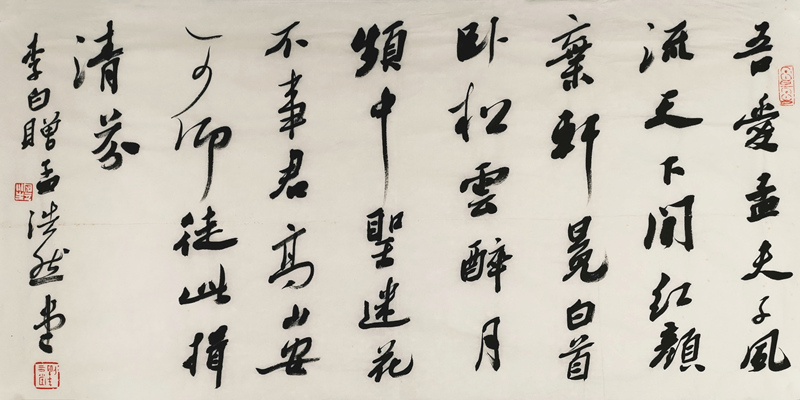 吾愛孟夫子風
流天下聞紅顏
棄軒冕白首
臥松雲醉月
頻中聖迷花
不事君高山安
可仰徒此揖
清芬
李白贈孟浩然